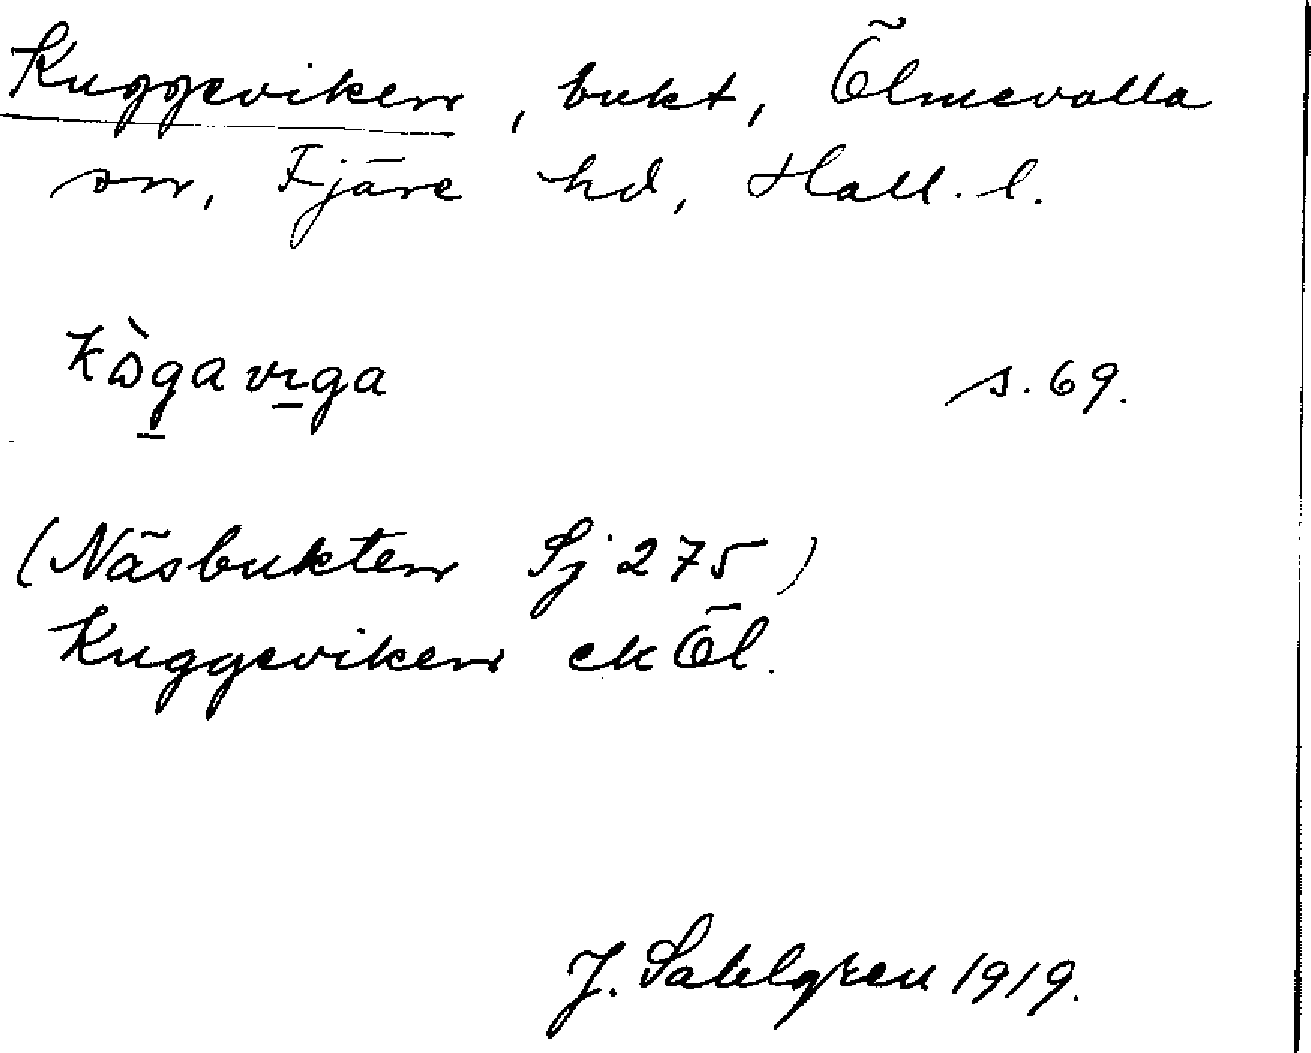 Kuggeviken, bukt, Ölmevalla
sn, Fjäre hd, Hall. l.
kògavıga s. 69.
(Näsbukten Sj 275)
Kuggeviken ek Öl.
J. Sahlgren 1919.